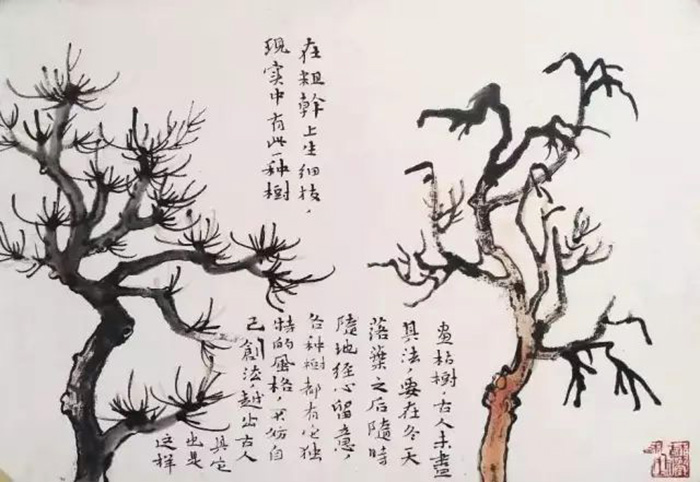 在粗幹上生细枝，
现实中有此一种樹
畫枯樹，古人未盡
其法，要在冬天
落葉之后隨時
隨地经心留意，
各种樹都有它独
特的風格，不妨自
己創法，越出古人
其它
也是
这样